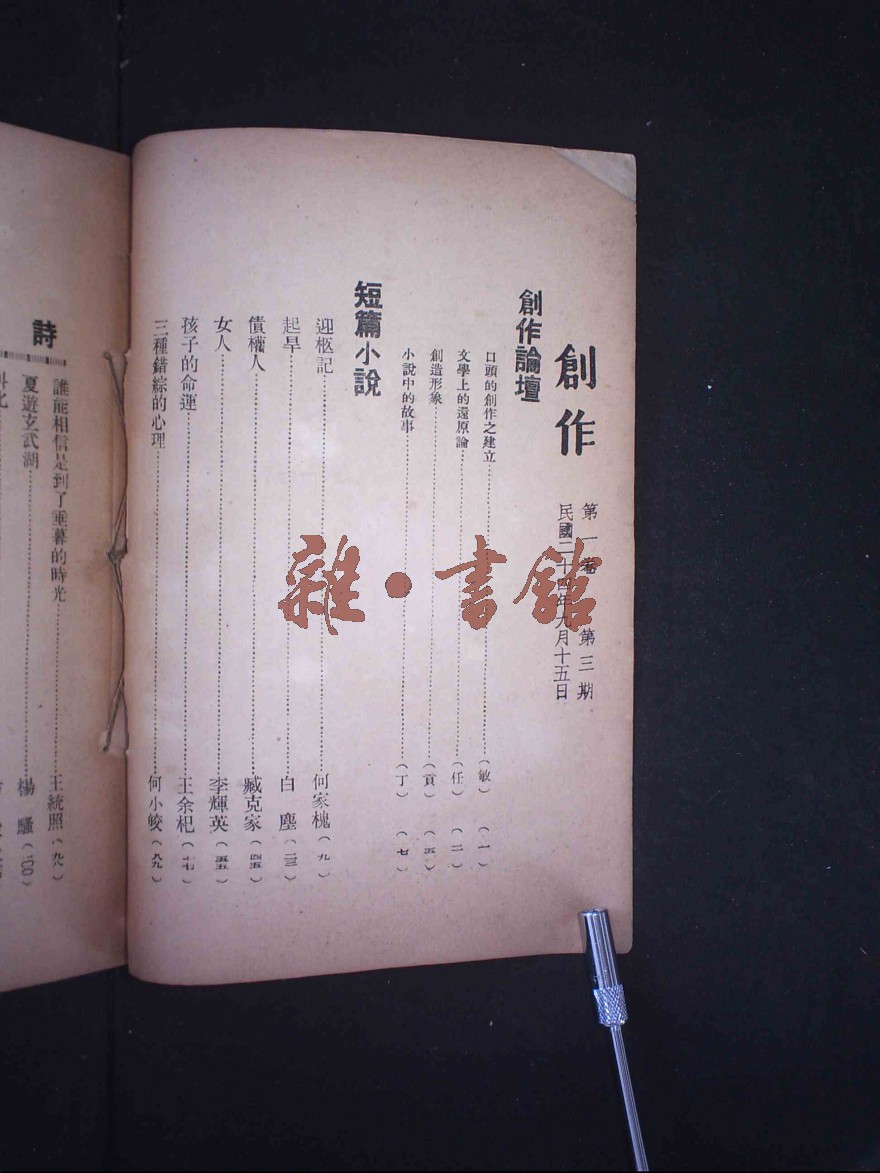 創作
第一卷 第三期
民國二十四年九月十五日
創作論壇
口頭的創作之建立（敏）（一）
文學上的還原論（任）（二）
創造形象（貢）（五）
小說中的故事（丁）（七）
短篇小說
迎柩記 何家槐（九）
起旱 白塵（二三）
債權人 臧克家（四五）
女人 李輝英（五五）
孩子的命運 王余杞
三種錯綜的心理 何小蛟（八九）
詩
誰能相信是到了垂暮的時光 王統照
夏遊玄武湖 楊騷（一〇〇）
雜·書館